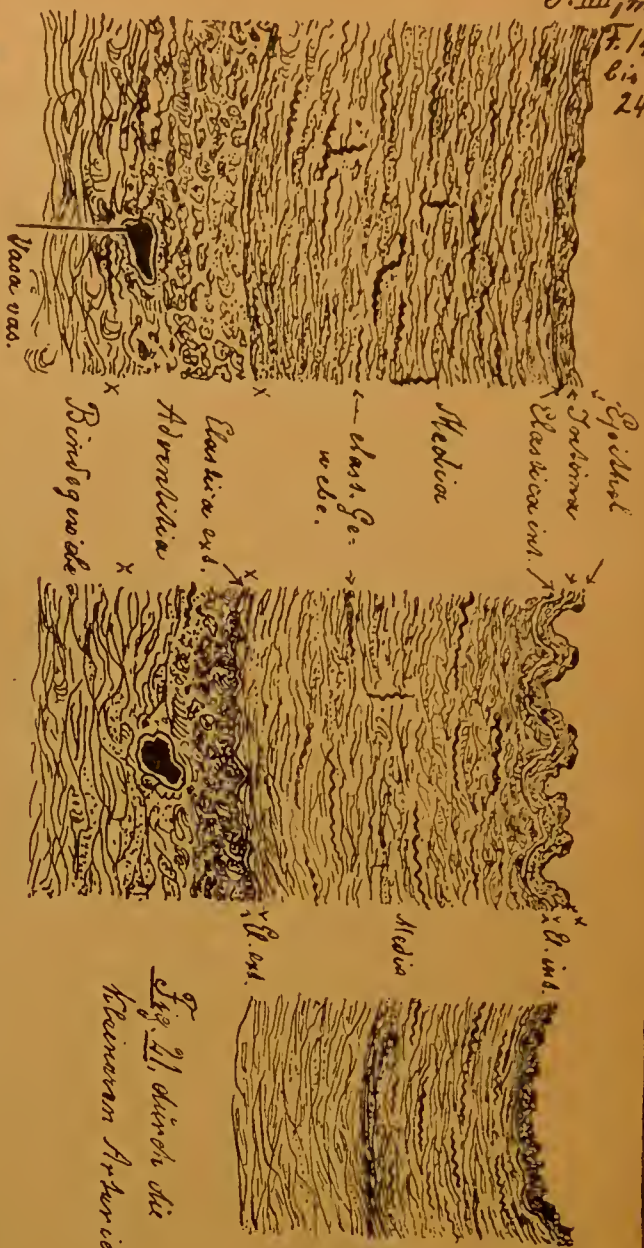 F.
bis
24
Epithel
Intima
Elastica int.
Media
elast. Ge-
webe.
Elastica ext.
Adventitia
Bindegewebe
Vasa vas.
El. int.
Media
El. ext.
Fig. 21. durch die
kleineren Arterie